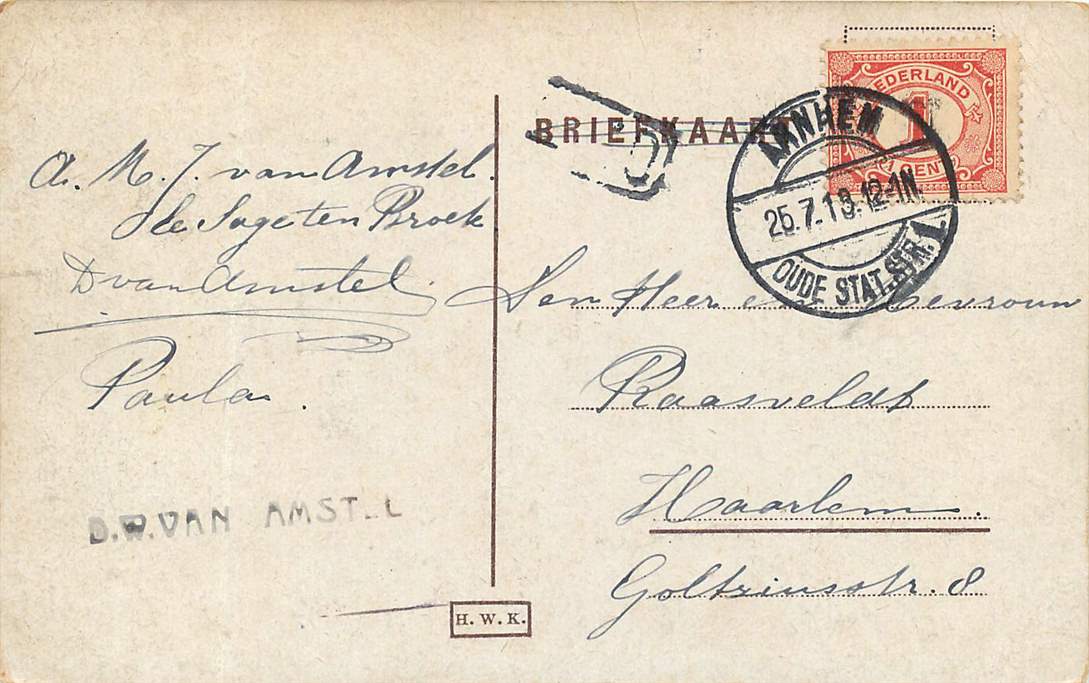 BRIEFKAART
NEDERLAND
1
CENT
ARNHEM
25.7.13.12-1N.
OUDE STAT.STR.1
A. M. J. van Amstel.
Broek
D van Amstel.
Paula.
D.W. VAN AMSTEL
Den Heer en Mevrouw
Raasveldt
Haarlem.
Goltziusstr. 8
H. W. K.